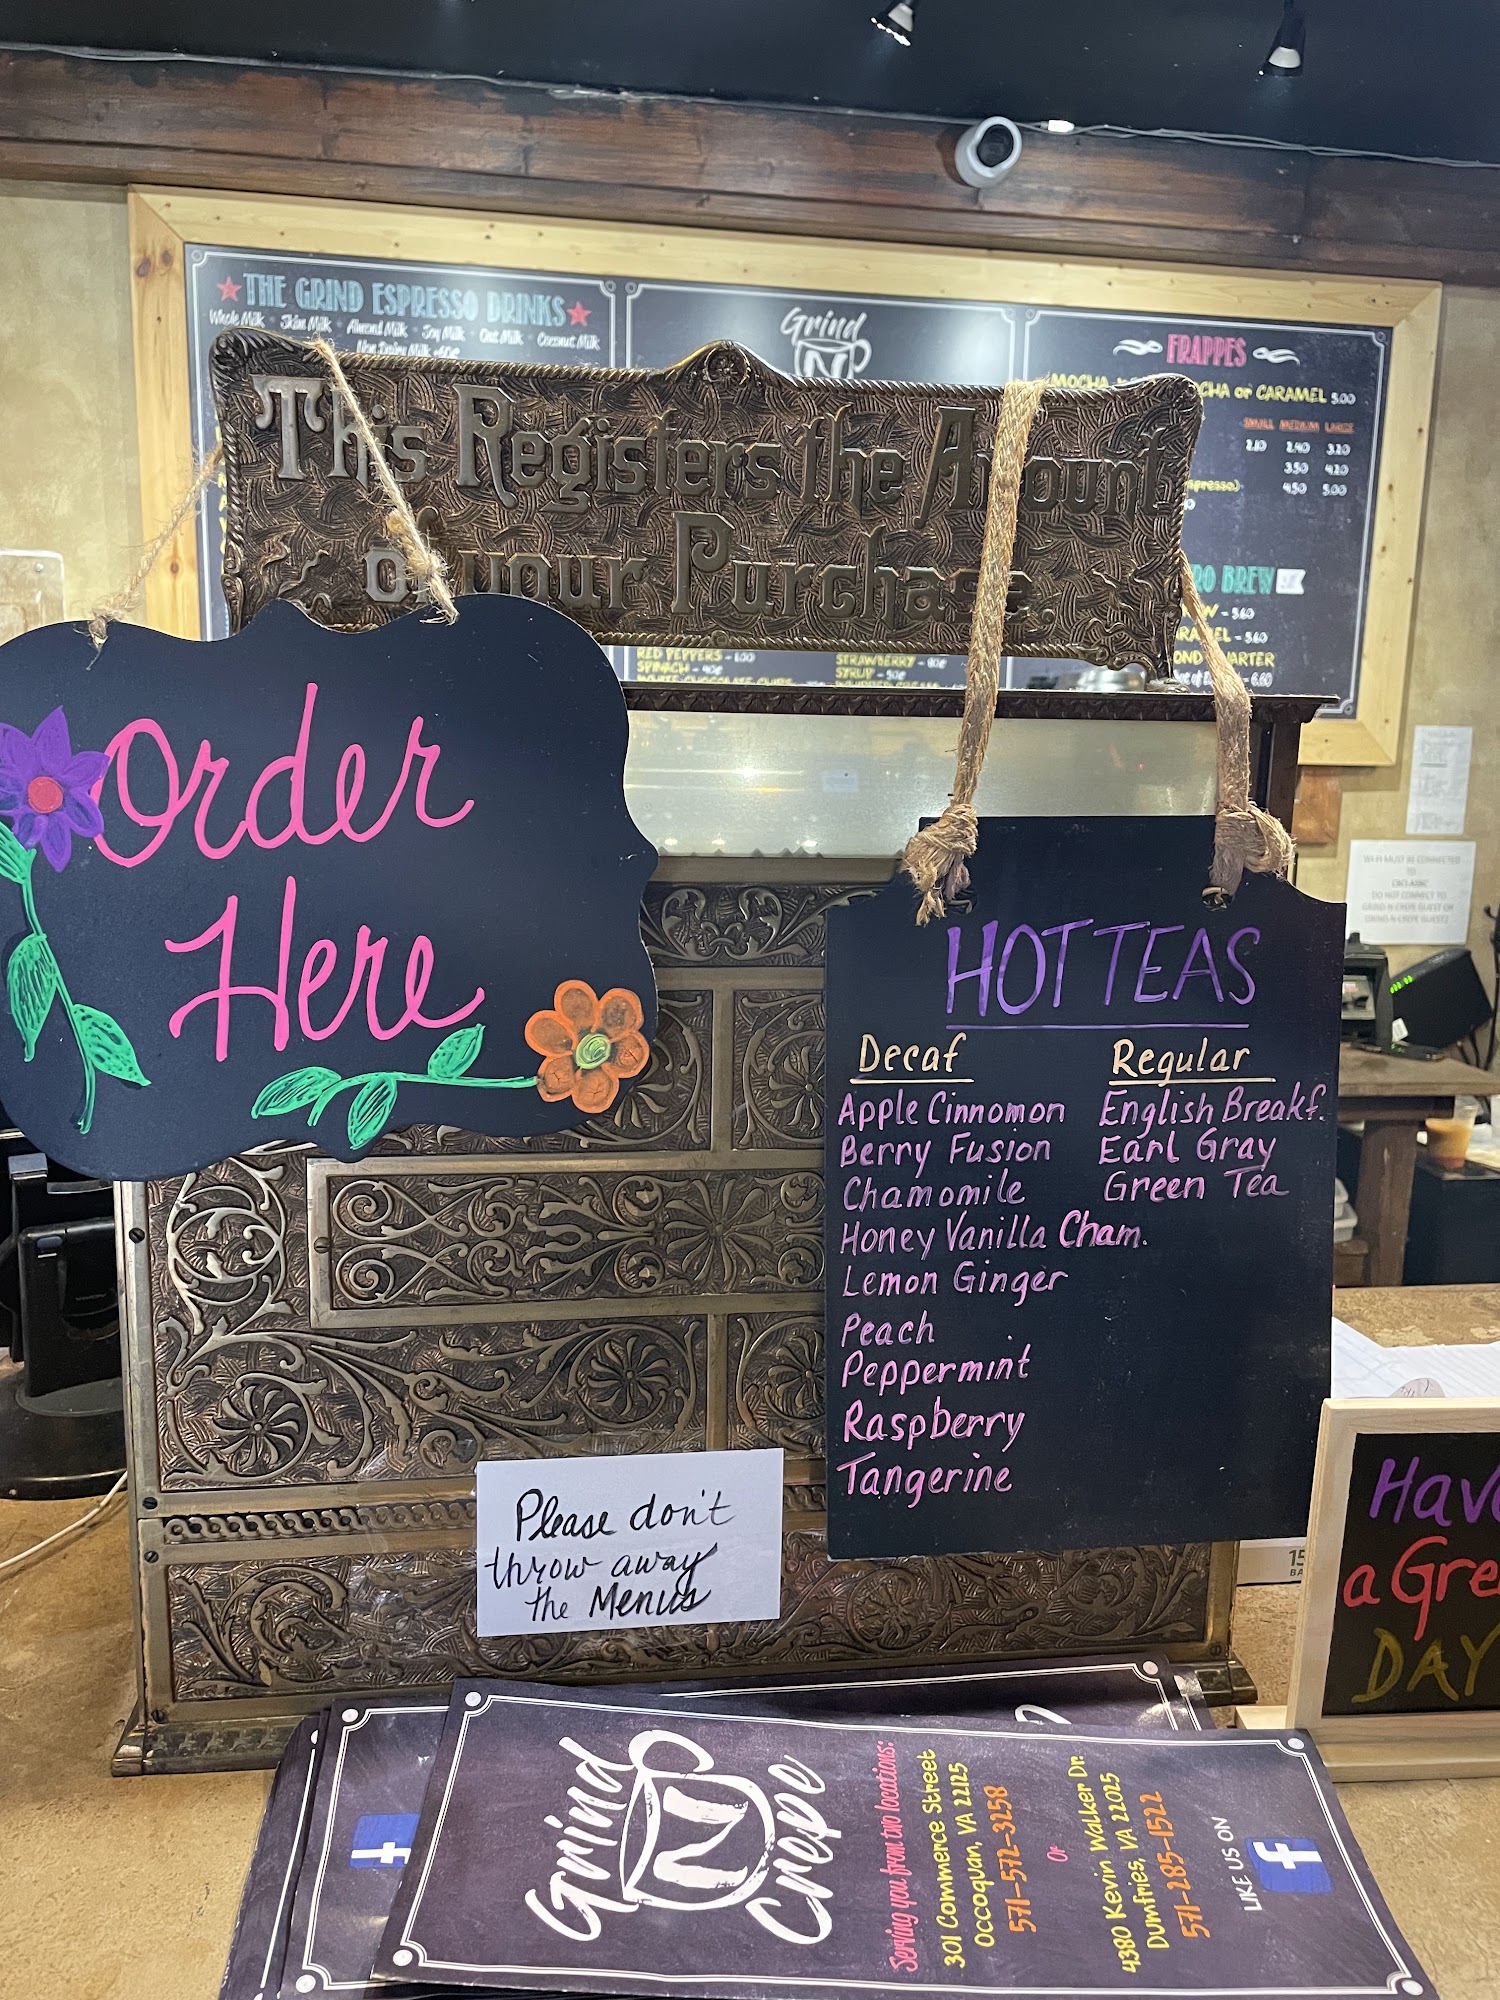 THE GRIND ESPRESSO DRINKS
Whole Milk Skim Milk Almond Milk Soy Milk Oat Milk Coconut Milk
Non Dairy Milk
Grind
N
FRAPPES
MOCHA
or CARAMEL 5.00
SMALL MEDIUM LARGE
3.50 4.20
4.50 5.00
RO BREW
W - 5.60
RAMEL - 5.60
OND QUARTER
- 6.60
RED PEPPERS - 1.00
SPINACH
STRAWBERRY
SYRUP
This Registers the Amount
of your Purchase.
Order
Here
HOT TEAS
Decaf
Apple Cinnomon
Berry Fusion
Chamomile
Honey Vanilla Cham.
Lemon Ginger
Peach
Peppermint
Raspberry
Tangerine
Regular
English Breakf.
Earl Gray
Green Tea
WI-FI MUST BE CONNECTED
TO
DO NOT CONNECT TO
Please don't
throw away
the Menus
Hav
a Gre
DAY
15
BA
f
Grind
N
Crepe
Serving you from two locations:
301 Commerce Street
Occoquan, VA 22125
571-572-3258
or
4380 Kevin Walker Dr.
Dumfries, VA 22025
571-285-1522
LIKE US ON
f